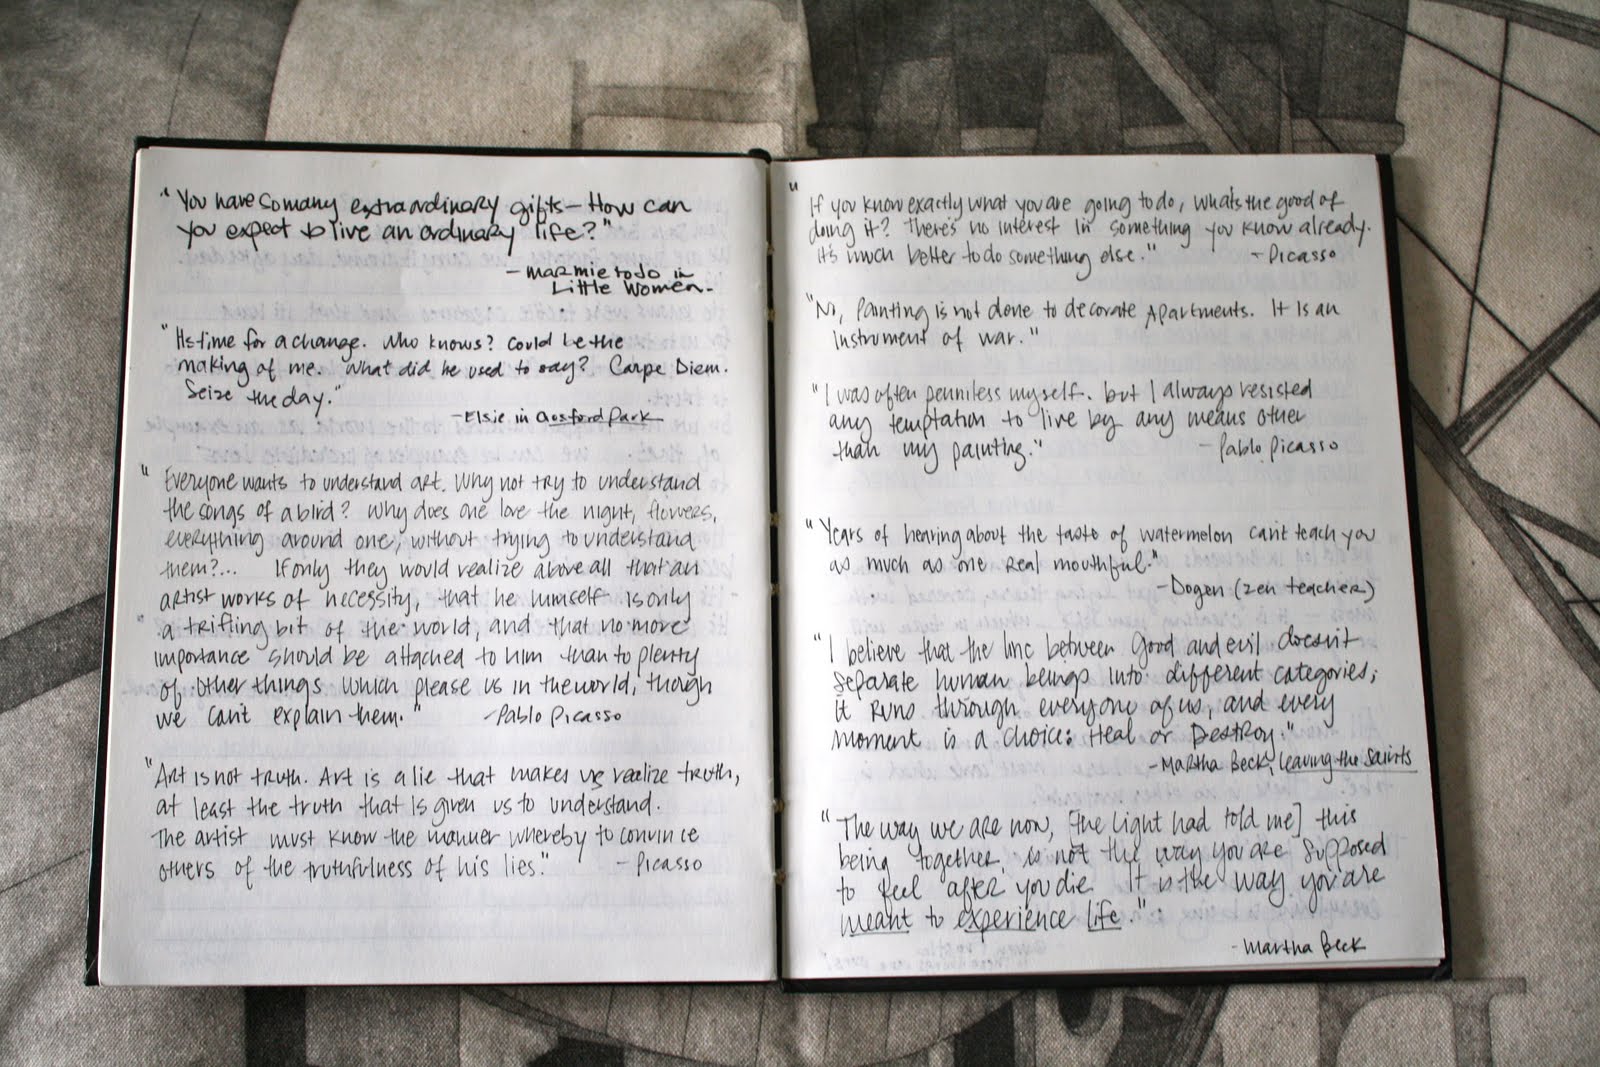 "You have so many extraordinary gifts – How can
you expect to live an ordinary life?"
– Marmie to Jo in
Little Women.
"It's time for a change. Who knows? Could be the
making of me. What did he used to say? Carpe Diem.
Seize the day."
– Elsie in Gosford Park
"Everyone wants to understand art. Why not try to understand
the songs of a bird? Why does one love the night, flowers,
everything around one, without trying to understand
them?... If only they would realize above all that an
artist works of necessity, that he himself is only
a trifling bit of the world, and that no more
importance should be attached to him than to plenty
of other things which please us in the world, though
we can't explain them." – Pablo Picasso
"Art is not truth. Art is a lie that makes us realize truth,
at least the truth that is given us to understand.
The artist must know the manner whereby to convince
others of the truthfulness of his lies." – Picasso
"If you know exactly what you are going to do, what's the good of
doing it? There's no interest in something you know already.
it's much better to do something else." – Picasso
"No, Painting is not done to decorate Apartments. It is an
instrument of war."
"I was often penniless myself. but I always resisted
any temptation to live by any means other
than my painting." – Pablo Picasso
"Years of hearing about the taste of watermelon can't teach you
as much as one real mouthful."
– Dogen (zen teacher)
"I believe that the line between Good and evil doesn't
separate human beings into different categories;
it runs through everyone of us, and every
moment is a choice: Heal or Destroy."
– Martha Beck, Leaving the Saints
"The way we are now, [the light had told me] this
being together, is not the way you are supposed
to feel after you die. It is the way you are
meant to experience life."
– Martha Beck